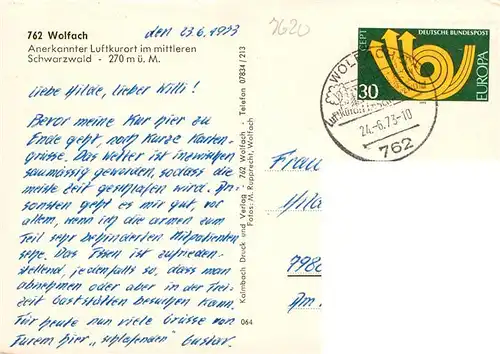 762 Wolfach
Anerkannter Luftkurort im mittleren
Schwarzwald - 270 m ü. M.
den 23.6.1973
7620
Liebe Hilde, lieber Willi!
Bevor meine Kur hier zu
Ende geht, noch kurze Karten-
grüsse. Das Wetter ist inzwischen
saumässig geworden, sodass die
meiste Zeit geschlafen wird. An-
sonsten geht es mir gut, vor
allem, wenn ich die armen zum
Teil sehr behinderten Mitpatienten
sehe. Das Essen ist zufrieden-
stellend, jedenfalls so, dass man
abnehmen oder aber in der Frei-
zeit Gaststätten besuchen kann.
Für heute nun viele Grüsse von
Eurem hier „schlafenden" Gustav.
Kolmbach Druck und Verlag - 762 Wolfach - Telefon 07834/213
Fotos: M. Rupprecht, Wolfach
064
CEPT
DEUTSCHE BUNDESPOST
EUROPA
30
WOLFACH
Luftkurort
24.-6.73-10
762
Frau
7980
Am